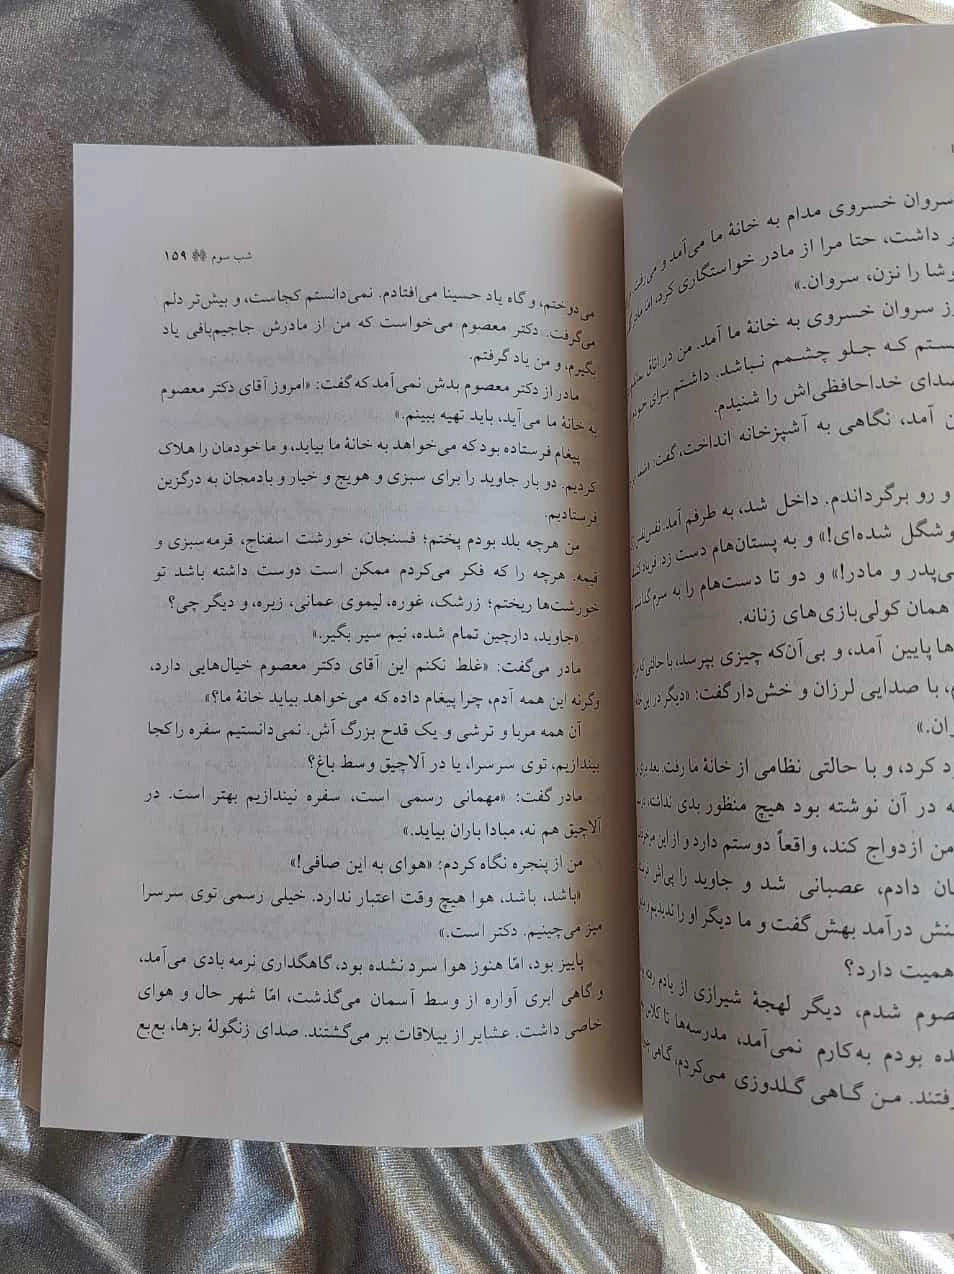 سروان خسروی مدام به خانهٔ ما می‌آمد و می‌رفت
داشت، حتا مرا از مادر خواستگاری کرد، اما مادر
را نزن، سروان.»
سروان خسروی به خانهٔ ما آمد. من در اتاق
که جلو چشمم نباشد. داشتم برای
صدای خداحافظی‌اش را شنیدم.
آمد، نگاهی به آشپزخانه انداخت، گفت:
و رو برگرداندم. داخل شد، به طرفم آمد.
شده‌ای!» و به پستان‌هام دست زد
و مادر!» و دو تا دست‌هام را به سرم
همان کولی‌بازی‌های زنانه.
پایین آمد، و بی‌آن‌که چیزی بپرسد، با حالتی که
با صدایی لرزان و خش‌دار گفت: «دیگر در این
کرد، و با حالتی نظامی از خانهٔ ما رفت. بعد
در آن نوشته بود هیچ منظور بدی نداشت،
ازدواج کند، واقعاً دوستم دارد و از این
دادم، عصبانی شد و جاوید را پی‌اش
درآمد بهش گفت و ما دیگر او را ندیدیم و
دارد؟
شدم، دیگر لهجهٔ شیرازی از یادم
بودم به‌کارم نمی‌آمد، مدرسه‌ها تا کلاس
من گاهی گلدوزی می‌کردم، گاهی
شب سوم ۱۵۹
می‌دوختم، و گاه یاد حسینا می‌افتادم. نمی‌دانستم کجاست، و بیش‌تر دلم
می‌گرفت. دکتر معصوم می‌خواست که من از مادرش جاجیم‌بافی یاد
بگیرم، و من یاد گرفتم.
مادر از دکتر معصوم بدش نمی‌آمد که گفت: «امروز آقای دکتر معصوم
به خانهٔ ما می‌آید، باید تهیه ببینم.»
پیغام فرستاده بود که می‌خواهد به خانهٔ ما بیاید، و ما خودمان را هلاک
کردیم. دو بار جاوید را برای سبزی و هویج و خیار و بادمجان به درگزین
فرستادیم.
من هرچه بلد بودم پختم؛ فسنجان، خورشت اسفناج، قرمه‌سبزی و
قیمه. هرچه را که فکر می‌کردم ممکن است دوست داشته باشد تو
خورشت‌ها ریختم؛ زرشک، غوره، لیموی عمانی، زیره، و دیگر چی؟
«جاوید، دارچین تمام شده، نیم سیر بگیر.»
مادر می‌گفت: «غلط نکنم این آقای دکتر معصوم خیال‌هایی دارد،
وگرنه این همه آدم، چرا پیغام داده که می‌خواهد بیاید خانهٔ ما؟»
آن همه مربا و ترشی و یک قدح بزرگ آش. نمی‌دانستیم سفره را کجا
بیندازیم، توی سرسرا، یا در آلاچیق وسط باغ؟
مادر گفت: «مهمانی رسمی است، سفره نیندازیم بهتر است. در
آلاچیق هم نه، مبادا باران بیاید.»
من از پنجره نگاه کردم: «هوای به این صافی!»
«باشد، باشد، هوا هیچ وقت اعتبار ندارد. خیلی رسمی توی سرسرا
میز می‌چینیم. دکتر است.»
پاییز بود، امّا هنوز هوا سرد نشده بود، گاهگداری نرمه بادی می‌آمد،
و گاهی ابری آواره از وسط آسمان می‌گذشت، امّا شهر حال و هوای
خاصی داشت. عشایر از ییلاقات بر می‌گشتند. صدای زنگولهٔ بزها، بع‌بع